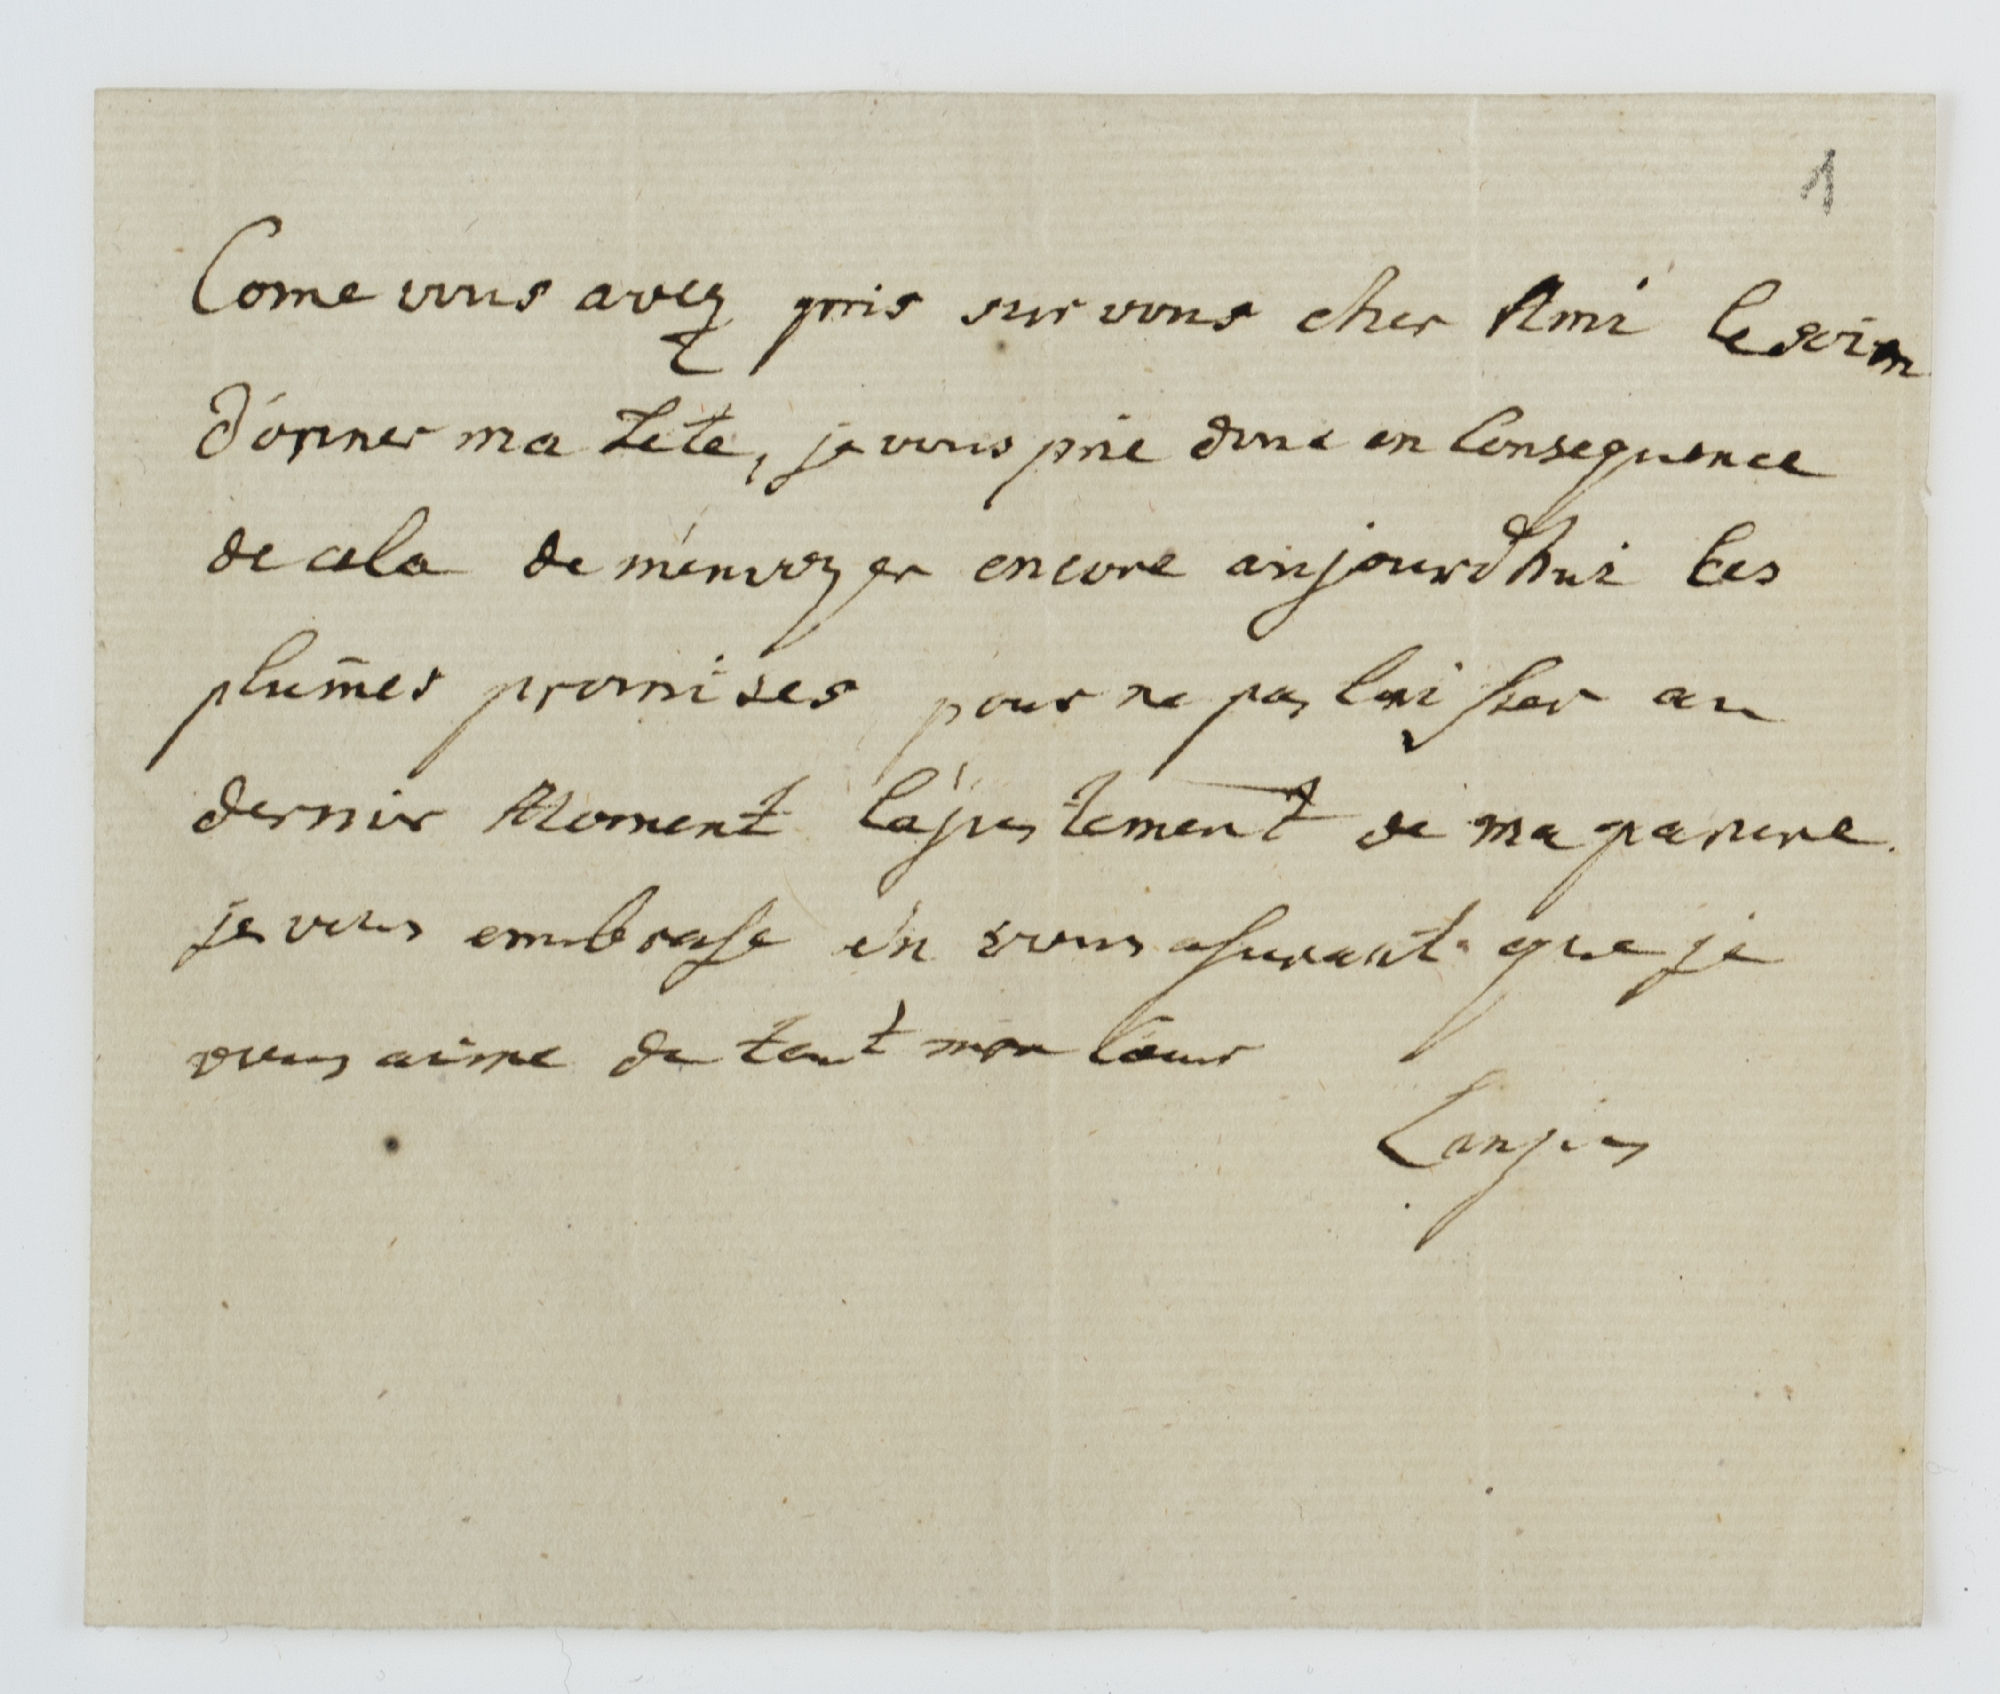 1
Come vous avez pris sur vous cher Ami le soin
d'orner ma tete, je vous prie donc en Consequence
de cela de m'envoyer encore aujourd'hui les
plumes promises pour ne pas laisser au
dernier Moment l'ajustement de ma parure.
je vous embrasse en vous assurant que je
vous aime de tout mon Cœur